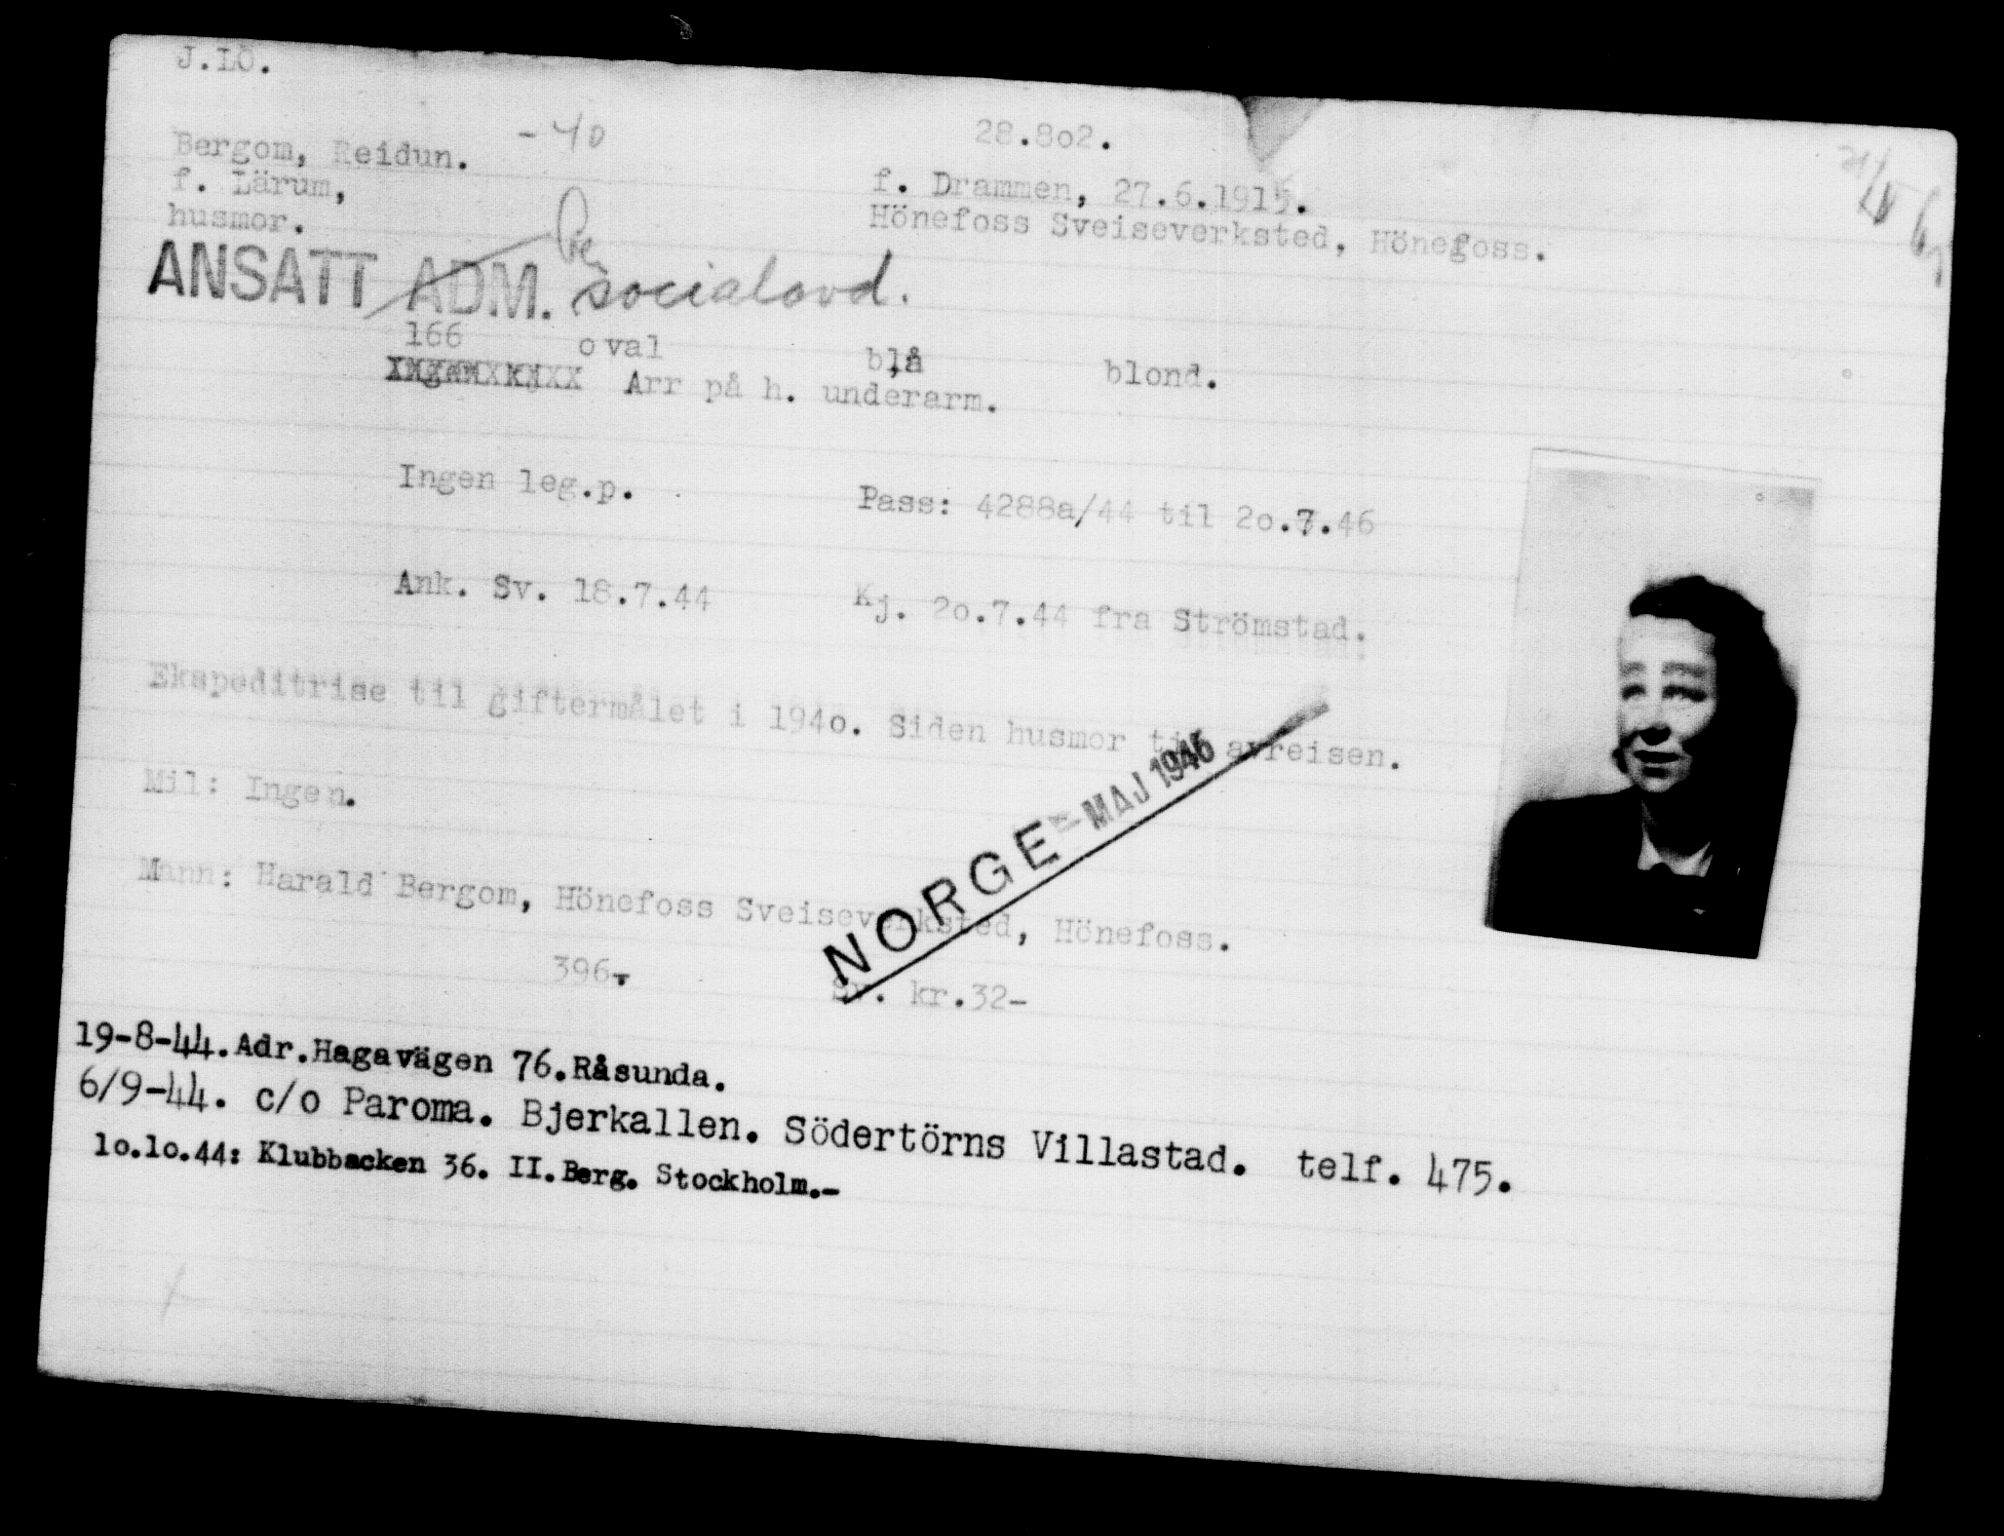 J.LÖ.
-40
28.8o2.
Bergom, Reidun.
f. Lärum,
f. Drammen, 27.6.1915.
husmor.
Hönefoss Sveiseverksted, Hönefoss.
ANSATT ADM. socialavd.
166 oval blå blond.
Arr på h. underarm.
Ingen leg.p. Pass: 4288a/44 til 2o.7.46
Ank. Sv. 18.7.44 Kj. 2o.7.44 fra Strömstad.
Ekspeditrise til giftermålet i 194o. Siden husmor til avreisen.
Mil: Ingen.
NORGE - MAJ 1945
Mann: Harald Bergom, Hönefoss Sveiseverksted, Hönefoss.
396.- Sv. kr.32-
19-8-44.Adr.Hagavägen 76.Råsunda.
6/9-44. c/o Paroma. Bjerkallen. Södertörns Villastad. telf. 475.
1o.1o.44: Klubbacken 36. II.Berg. Stockholm.-